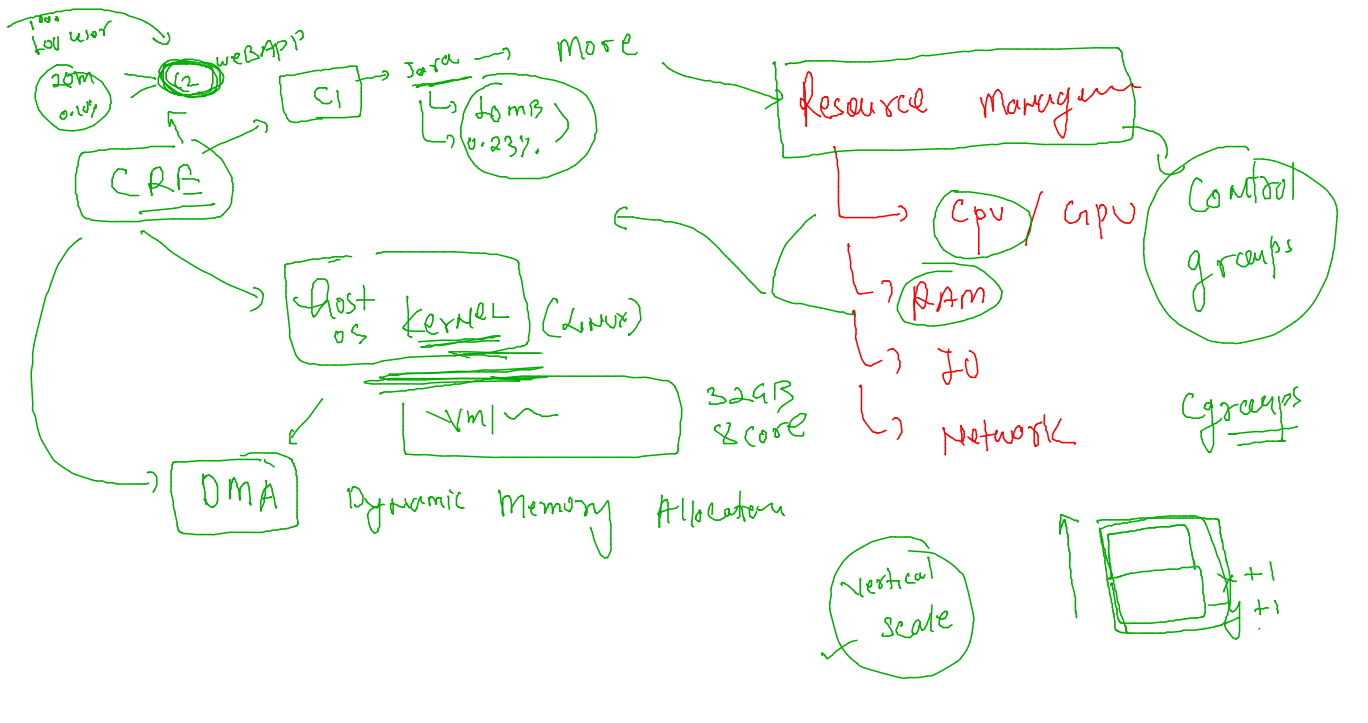 1000
100 user
WEBAPP
20M
0.10%
C2
C1
Java
More
10MB
0.23%
CRE
Resource Managem
Cpu / GPU
RAM
IO
Network
Control
groups
Cgroups
Host
OS
Kernel
(Linux)
VM
32GB
8 core
DMA
Dynamic Memory Allocation
Vertical
scale
x +1
y +1